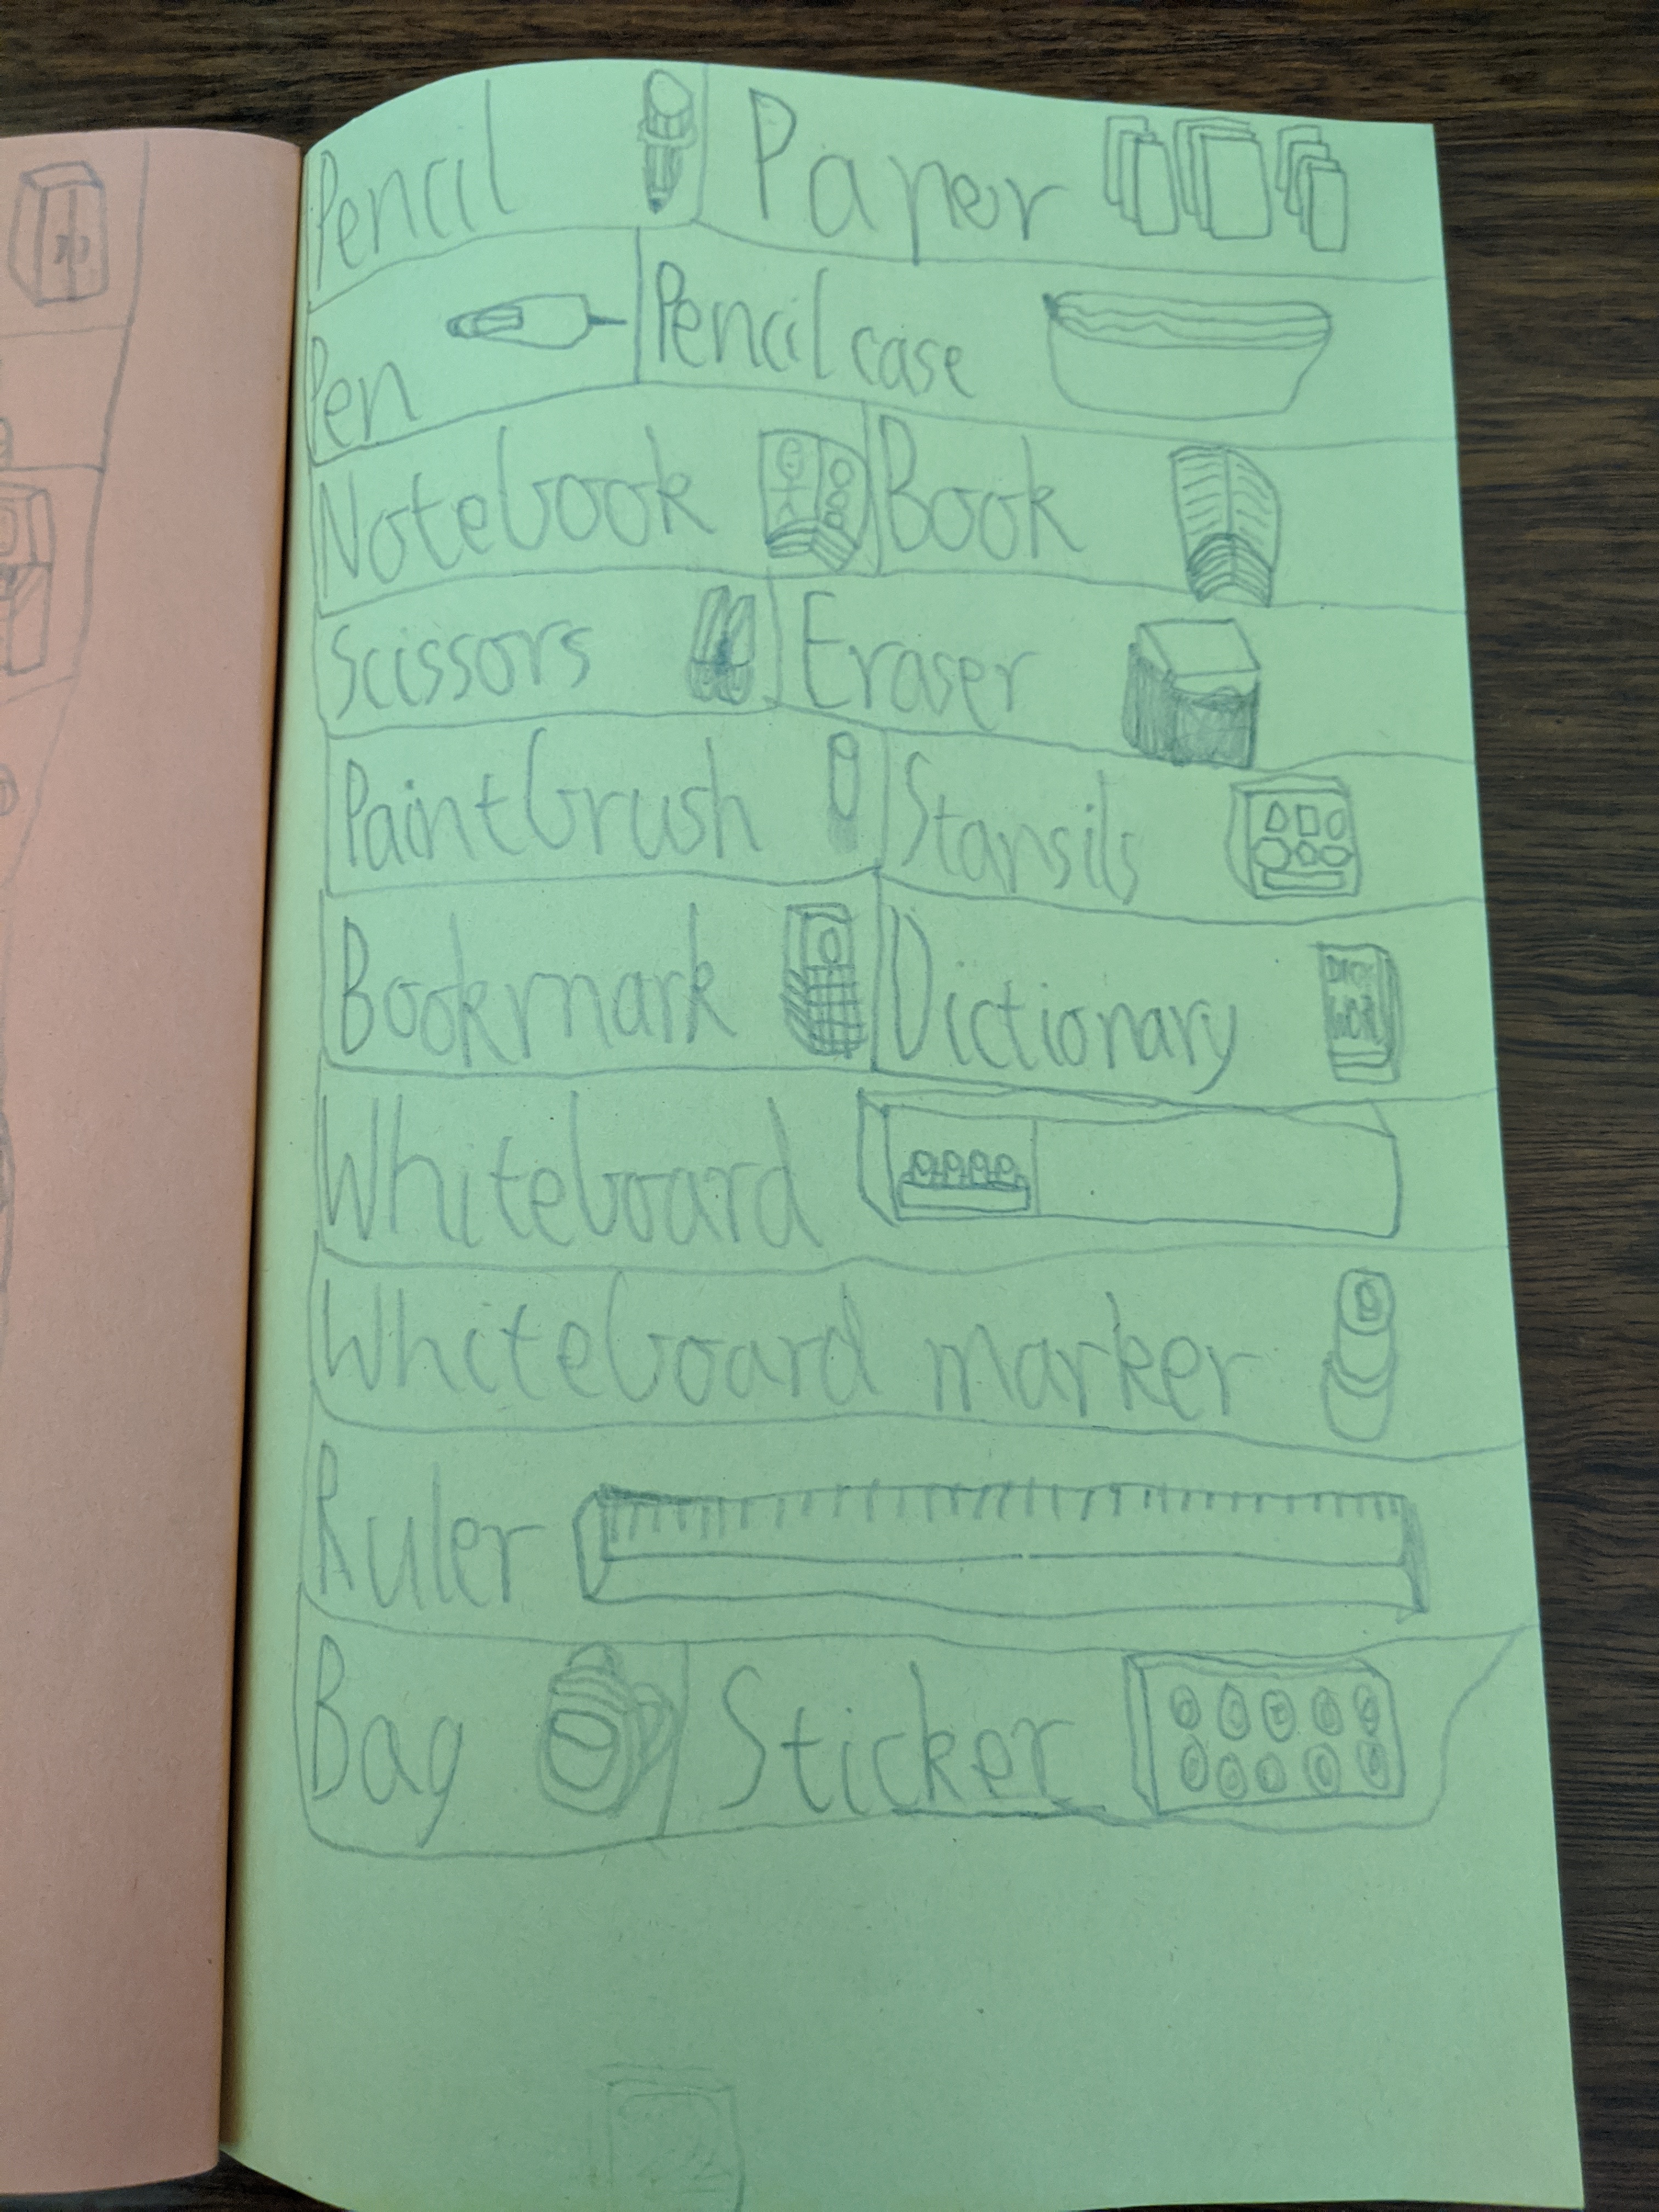 Pencil Paper
Pen Pencil case
Notebook Book
Scissors Eraser
Paintbrush Stansils
Bookmark Dictionary
Whiteboard
Whiteboard marker
Ruler
Bag Sticker